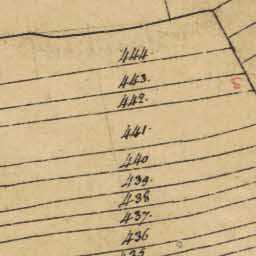 444.
443.
442.
441.
440
439.
438
437.
436
435